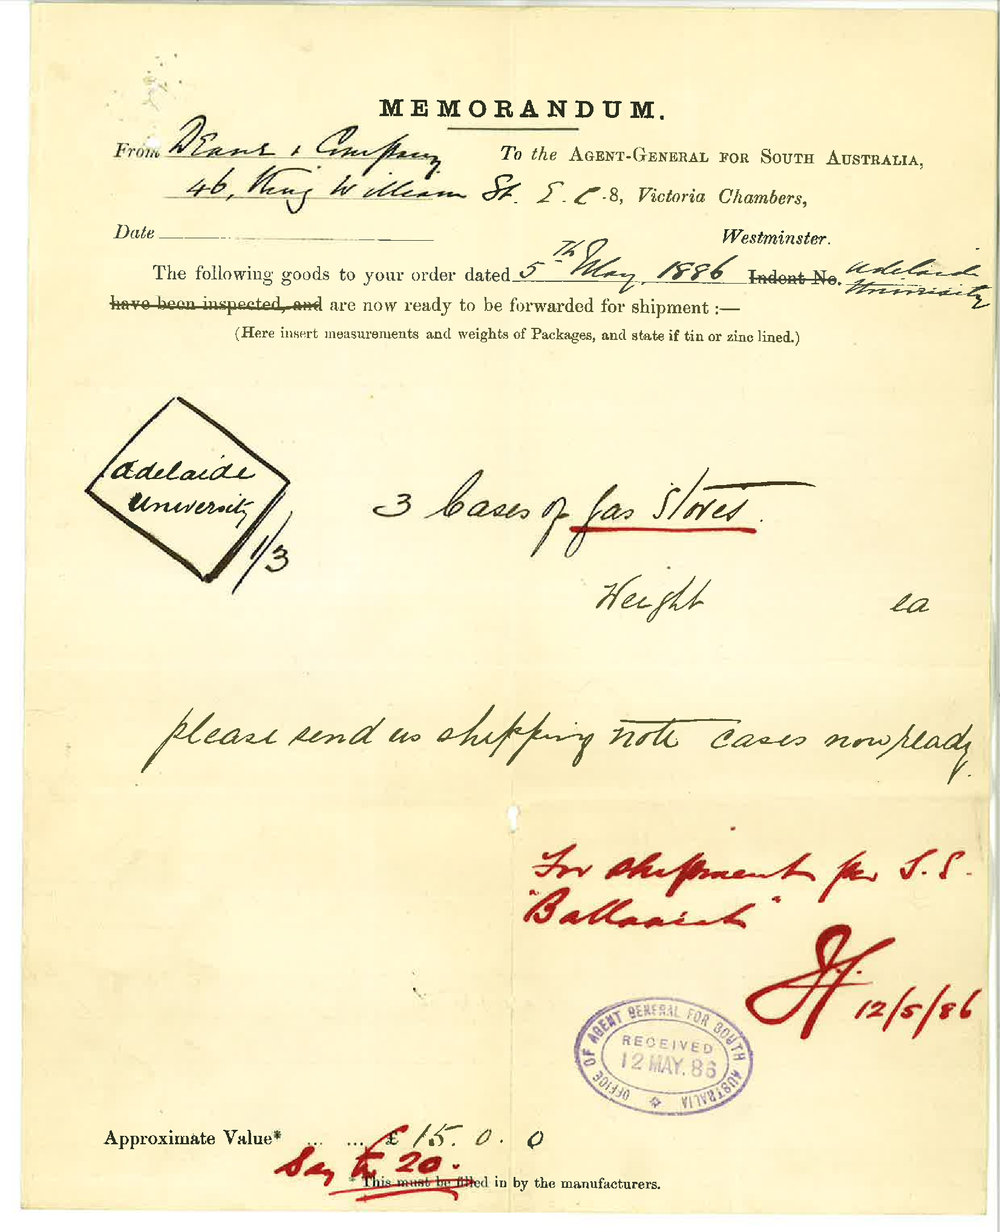 MEMORANDUM.
From Deane & Company To the AGENT-GENERAL FOR SOUTH AUSTRALIA,
46, King William St. E.C. 8, Victoria Chambers,
Date Westminster.
The following goods to your order dated 5th May 1886 Indent No. Adelaide University
have been inspected, and are now ready to be forwarded for shipment :—
(Here insert measurements and weights of Packages, and state if tin or zinc lined.)
Adelaide
University
1/3
3 Cases of Gas Stoves.
Weight ea
please send us shipping note cases now ready.
For shipment per S.S.
"Ballaarat"
12/5/86
OFFICE OF AGENT GENERAL FOR SOUTH AUSTRALIA
RECEIVED
12 MAY. 86
Approximate Value* ... ... £ 15. 0. 0
Say £20.
* This must be filled in by the manufacturers.